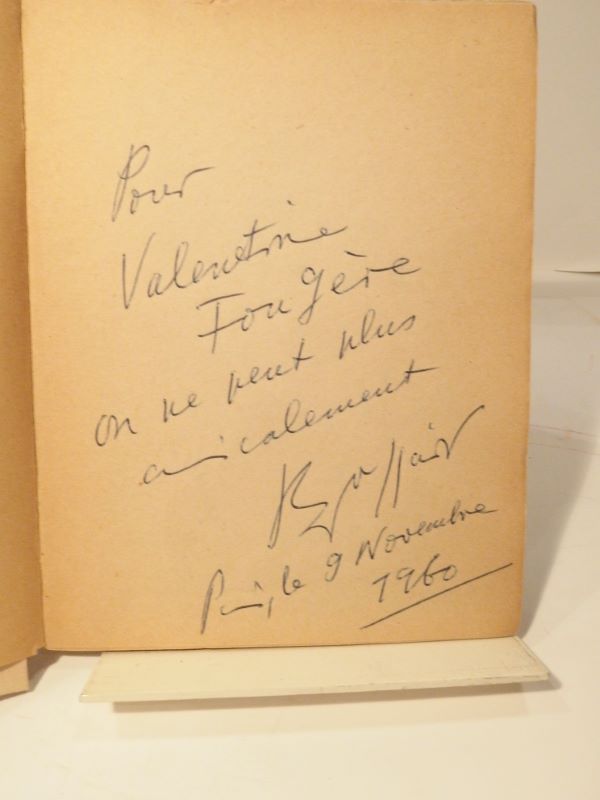 Pour
Valentine
Fougère
on ne peut plus
amicalement
Paris, le 9 Novembre
1960